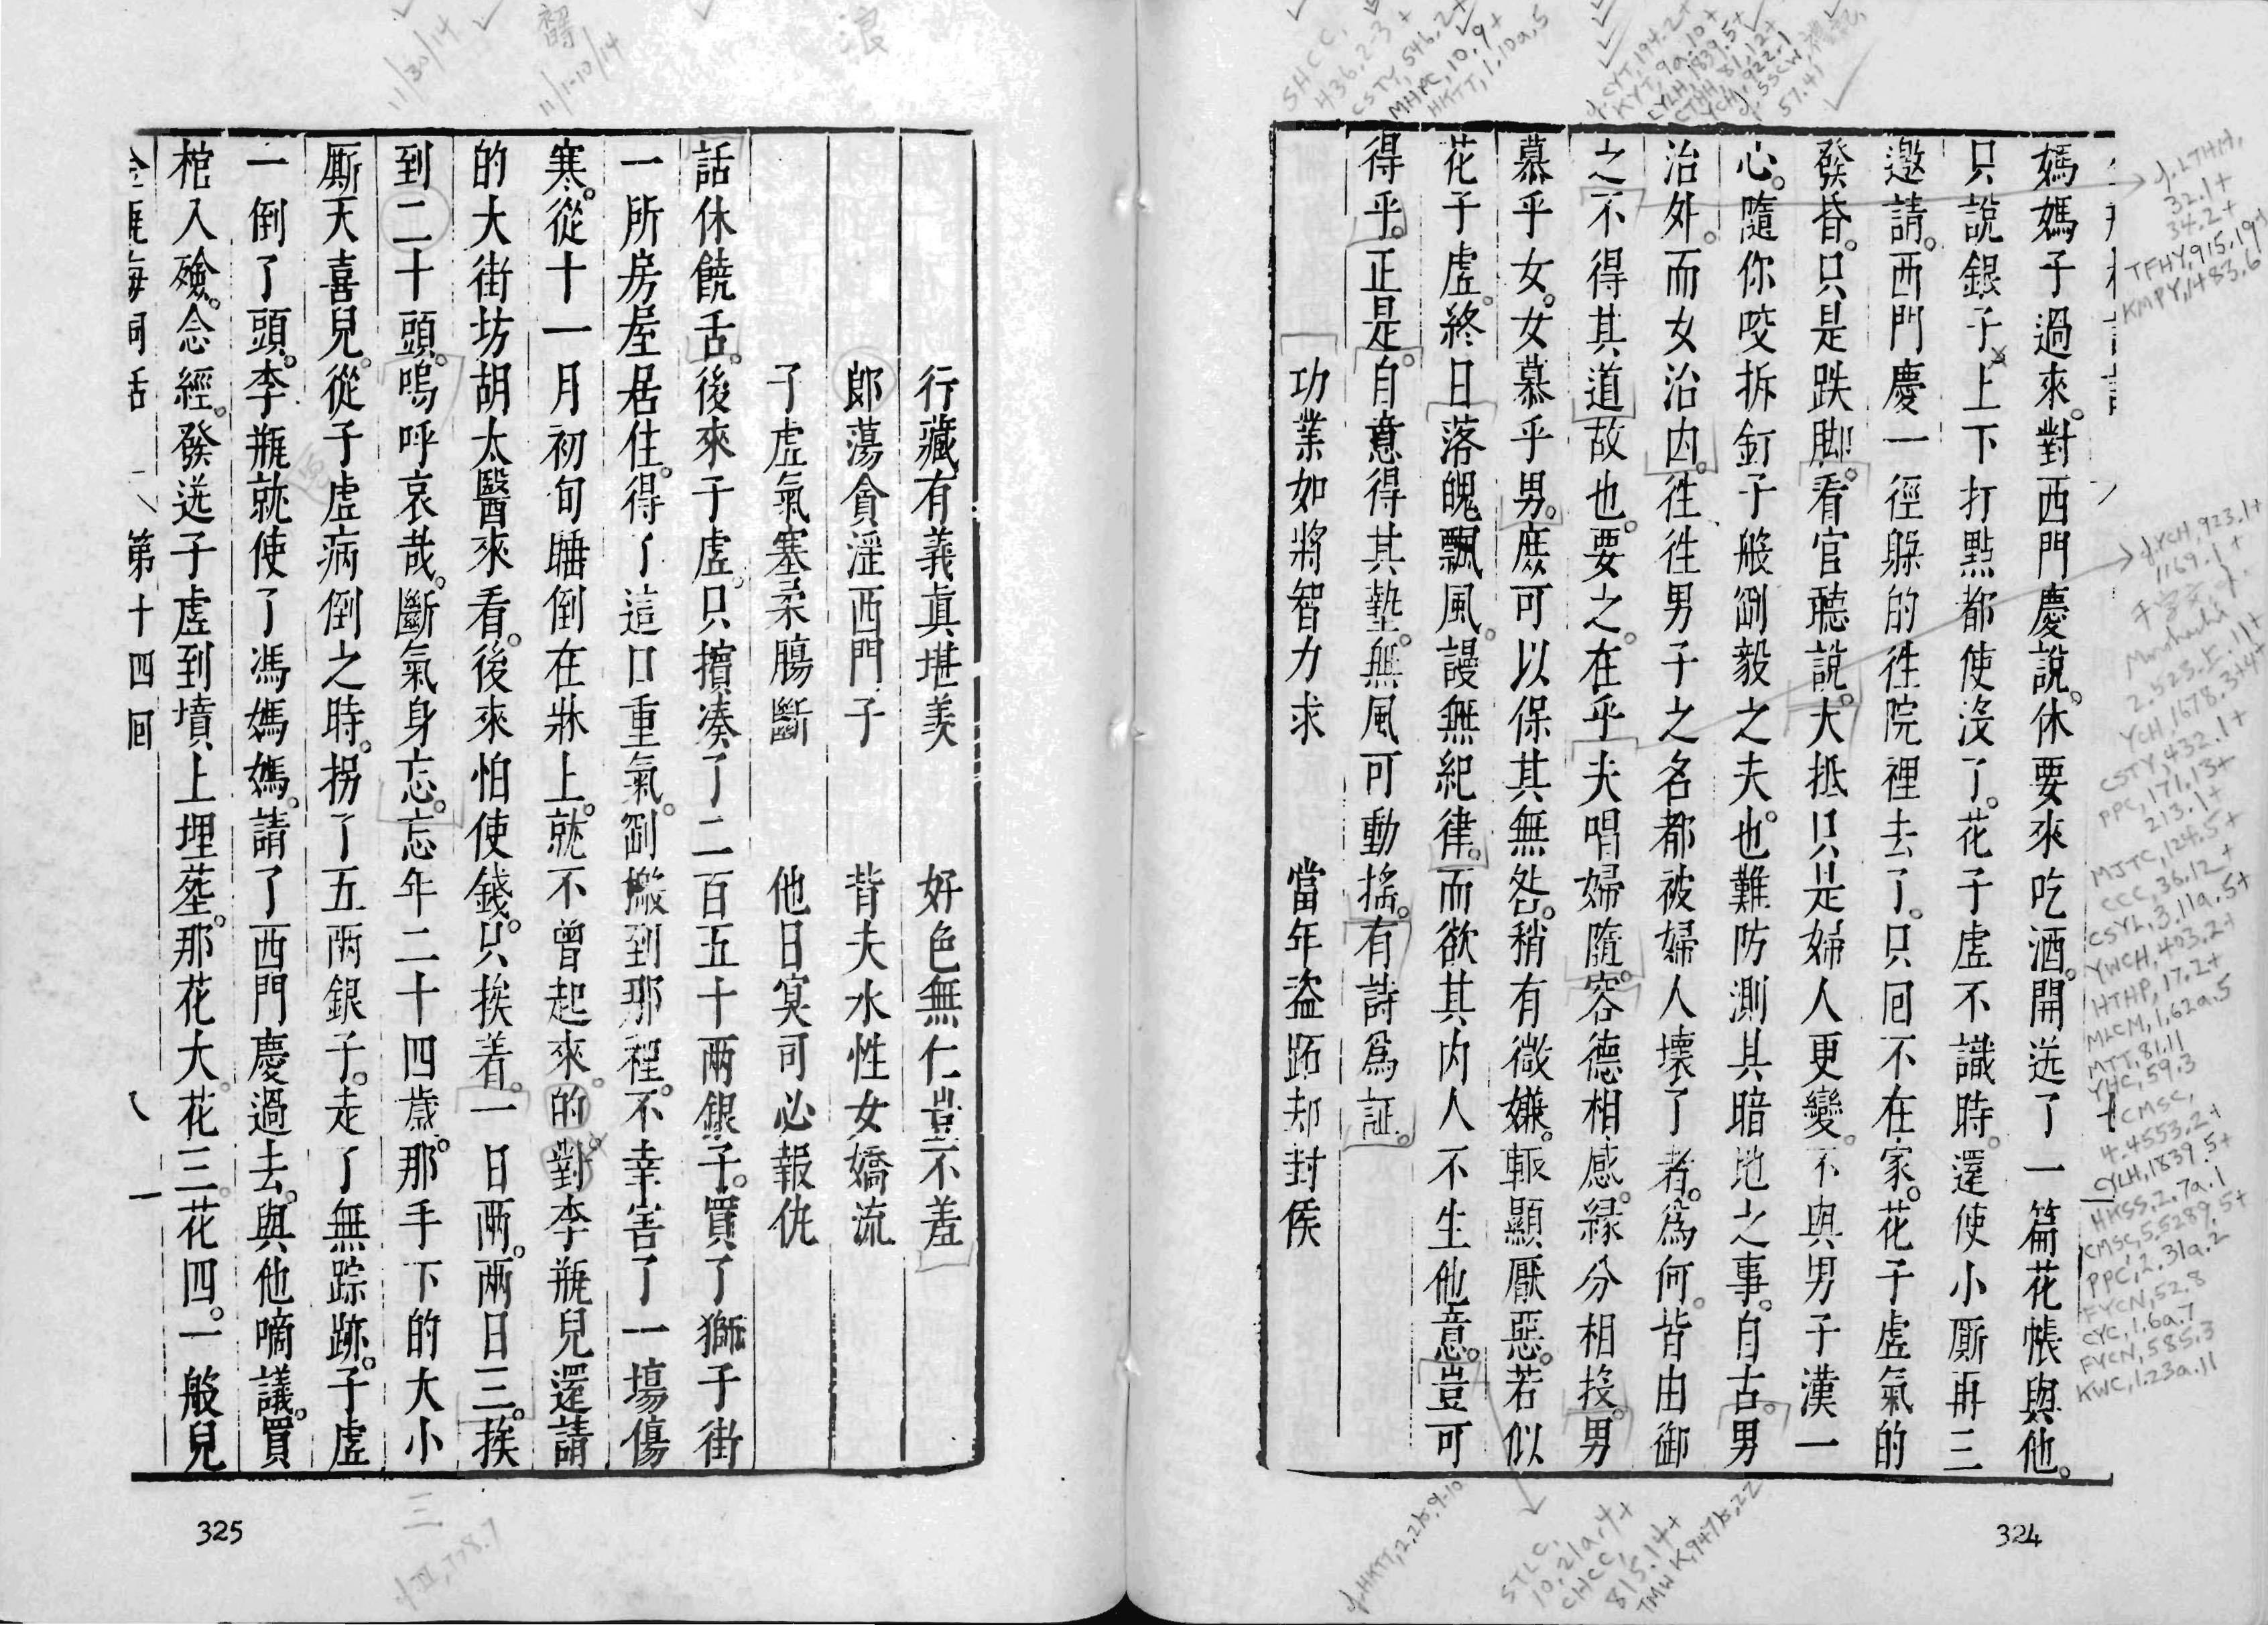 媽媽子過來。對西門慶說。休要來吃酒。開送了一篇花帳與他。
只說銀子上下打點都使沒了。花子虛不識時。還使小厮再三
邀請。西門慶一徑躱的徃院裡去了。只囘不在家。花子虛氣的
發昏。只是跌脚。看官聽說。大抵只是婦人更變。不與男子漢一
心。隨你咬折釘子般剛毅之夫也。難防測其暗地之事。自古。男
治外。而女治内。徃徃男子之名都被婦人壞了者。爲何。皆由御
之不得其道故也。要之。在乎夫唱婦隨。容德相感。緣分相投。男
慕乎女。女慕乎男。庶可以保其無咎。稍有微嫌。輒顯厭惡。若似
花子虛。終日落魄飄風。謾無紀律。而欲其内人不生他意。豈可
得乎。正是。自意得其墊。無風可動搖。有詩爲証。
功業如將智力求 當年盜跖却封侯
行藏有義眞堪羡 好色無仁豈不羞
郎蕩貪淫西門子 背夫水性女嬌流
子虛氣塞柔腸斷 他日冥司必報仇
話休饒舌。後來子虛。只擯湊了二百五十兩銀子。買了獅子街
一所房屋居住。得了這口重氣。剛搬到那裡。不幸害了一塲傷
寒。從十一月初旬睡倒在牀上。就不曾起來。的對李瓶兒還請
的大街坊胡太醫來看。後來怕使錢。只挨着。一日兩。兩日三。挨
到二十頭。嗚呼哀哉。斷氣身亡。亡年二十四歲。那手下的大小
厮天喜兒。從子虛病倒之時。拐了五兩銀子。走了無踪跡。子虛
一倒了頭。李瓶就使了馮媽媽。請了西門慶過去。與他啇議。買
棺入殮。念經。發送子虛到墳上埋塟。那花大。花三。花四。一般兒
金瓶梅詞話 第十四囘 八 一
325
324
翻
11/30/14
11/1-10/14
浪
SHCC,
436.2-3+
CSTY, 546.2+
MHPC, 10.9+
HKTT, 1.10a.5
CYT, 194.2+
KYT, 9a.10+
CYLH, 1839.5+
CTHH, 81.12+
YCH, 922.1
SSCW,
57.41
LTHM,
32.1+
34.2+
TFHY, 915.19+
KMPY, 1483.6
YCH, 923.1+
1169.1+
YCH, 1678.3+4+
CSTY, 432.1+
PPC, 171.13+
213.1+
MJTC, 124.5+
CCC, 36.12+
CSYL, 3.11a.5+
YWCH, 403.2+
HTHP, 17.2+
MLCM, 1.62a.5
MTT, 81.11
YHC, 59.3
CMSC,
4.4553.2+
CYLH, 1839.5+
HKSS, 2.7a.1
CMSC, 5.5289.5+
PPC, 2.31a.2
FYCN, 52.8
CYC, 1.6a.7
FYCN, 585.3
KWC, 1.23a.11
HKTT, 2.2b.9-10
STLC,
10.21a.4+
CHCC,
815.14+
TMWK, 947b.22
三